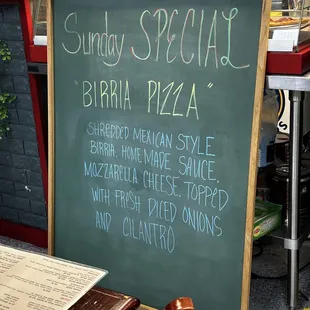 Sunday SPECIAL
"BIRRIA PIZZA"
SHREDDED MEXICAN STYLE
BIRRIA, HOMEMADE SAUCE,
MOZZARELLA CHEESE, TOPPED
WITH FRESH DICED ONIONS
AND CILANTRO